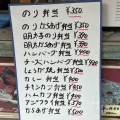 のり弁当 ¥350
のりから揚弁当 ¥350
明太のり弁当 ¥380
明太から揚弁当 ¥390
ハンバーグ弁当 ¥400
チーズハンバーグ弁当 ¥450
しょうが焼弁当 ¥500
カレー弁当 ¥400
チキンカツ弁当 ¥400
ハムカツ弁当 ¥400
アジフライ弁当 ¥390
からあげ弁当 ¥500